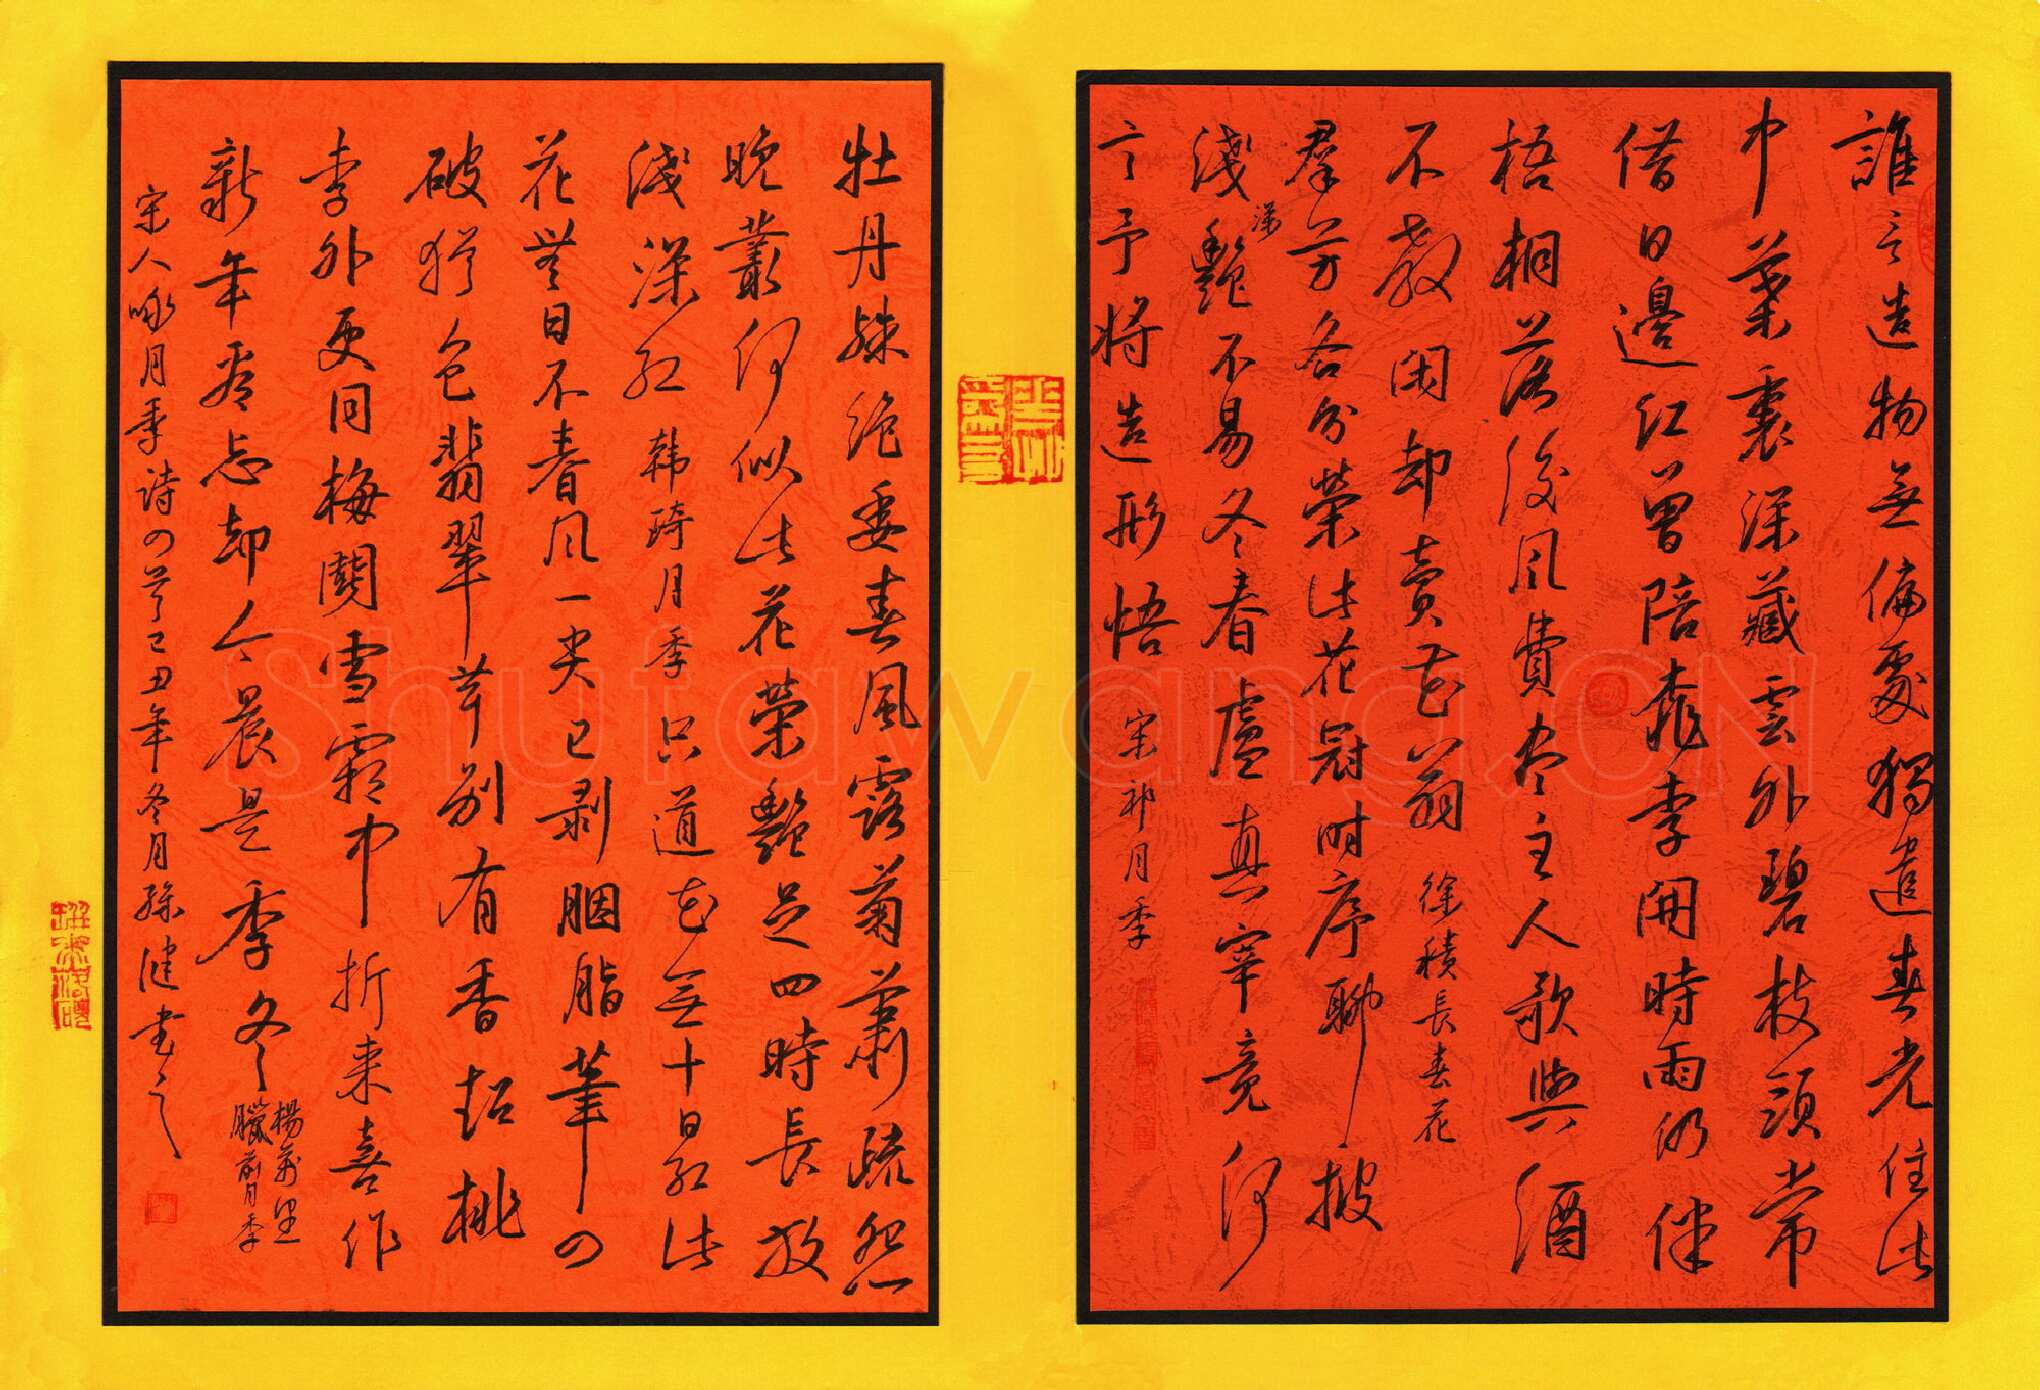 誰言造物無偏處獨遣春光住此
中葉裏深藏雲外碧枝頭常
借日邊紅曾陪桃李開時雨仍伴
梧桐落後風費盡主人歌與酒
不教閑却賣花翁 徐積長春花
羣芳各分榮此花冠時序聊披
淺深艷不易冬春慮真宰竟何
言予將造形悟 宋祁月季
牡丹殊絕委春風露菊蕭疏怨
晚叢何似此花榮艷足四時長放
淺深紅 韩琦月季 只道花無十日紅此
花無日不春風一尖已剥胭脂筆四
破猶包翡翠茸別有香超桃
李外更同梅鬪雪霜中折来喜作
新年看忘却今晨是季冬 楊萬里
臘前月季
宋人咏月季詩四首己丑年冬月孫健書之
Shufawang.CN